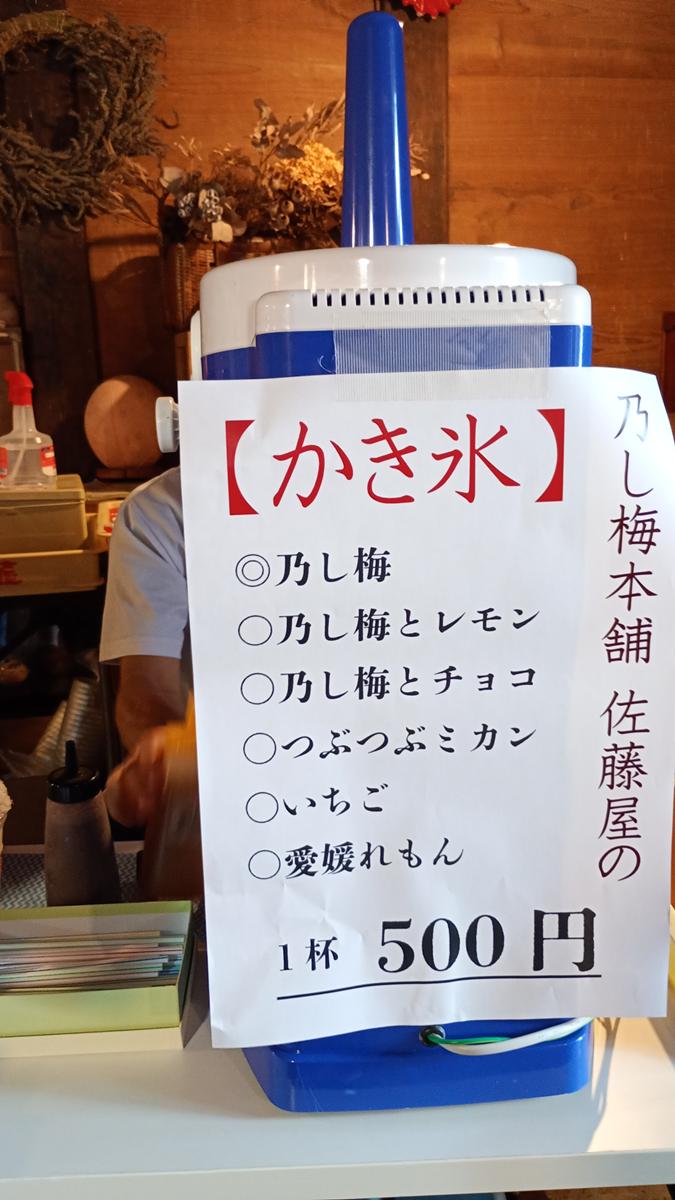 乃し梅本舗 佐藤屋の
【かき氷】
◎乃し梅
○乃し梅とレモン
○乃し梅とチョコ
○つぶつぶミカン
○いちご
○愛媛れもん
1杯 500円